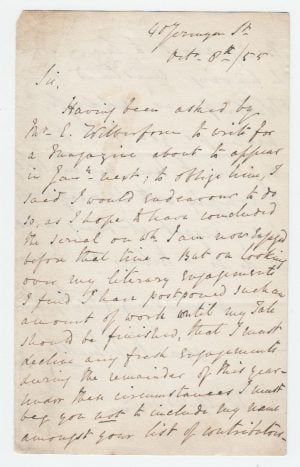 40 Jermyn St
Octr. 8th/55
Sir,
Having been asked by
Mr E. Wilberforce to write for
a Magazine about to appear
in Jany next; to oblige him, I
said I would endeavour to do
so, as I hope to have concluded
the serial on wh. I am now engaged
before that time – But on looking
over my literary Engagements
I find I have postponed such an
amount of work until my Tale
should be finished, that I must
decline any fresh Engagements
during the remainder of this year –
under these circumstances I must
beg you not to include my name
amongst your list of contributors –